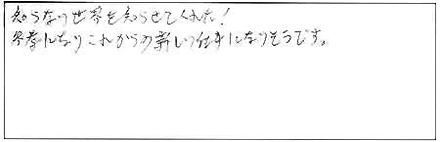 知らない世界を知らせてくれた!
参考になりこれからの新しい仕事になりそうです。